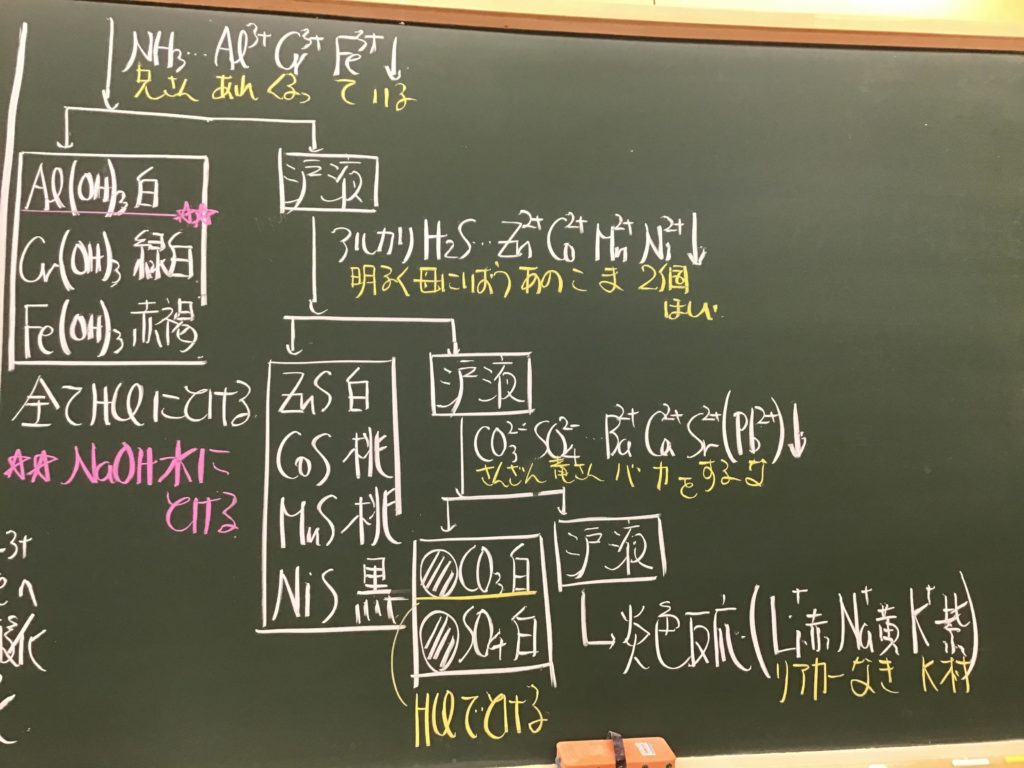 NH₃… Al³⁺ Cr³⁺ Fe³⁺↓
兄さん あれ くるっ て いる
Al(OH)₃ 白
☆☆
Cr(OH)₃ 緑白
Fe(OH)₃ 赤褐
全てHClにとける
☆☆ NaOH水に
とける
沪液
アルカリ H₂S… Zn²⁺ Co²⁺ Mn²⁺ Ni²⁺↓
明るく母にいばう あのこま 2個
ZnS 白
CoS 桃
MnS 桃
NiS 黒
沪液
CO₃²⁻ SO₄²⁻… Ba²⁺ Ca²⁺ Sr²⁺ (Pb²⁺)↓
さんざん 竜さん バカをするな
CO₃ 白
SO₄ 白
HClでとける
沪液
炎色反応 (Li⁺赤 Na⁺黄 K⁺紫)
リアカーなき K村
3+